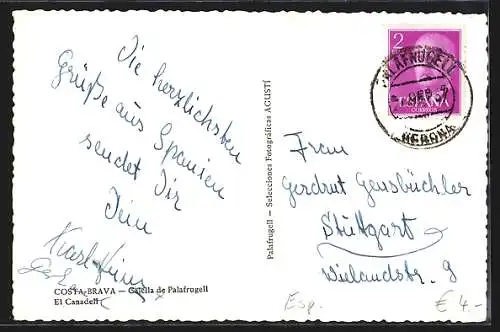 Die herzlichsten
Grüße aus Spanien
sendet Dir
Dein
Karl-Heinz
COSTA BRAVA — Calella de Palafrugell
El Canadell
Palafrugell — Selecciones Fotográficas AGUSTÍ
2
PALAFRUGELL
ESPAÑA
CORREOS
GERONA
Gerdrut Gensbüchler
Stuttgart
Wielandstr. 9
Esp.
€ 4.-